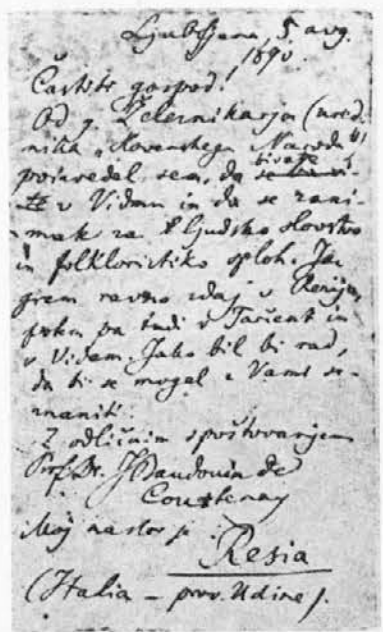 Ljubljana, 5 avg.
1890.
Častiti gospod!
Od g. Železnikarja (ured-
nika „Slovenskega Naroda“)
poizvedel sem, da bivate
v Vidmu in da se zani-
mate za ljudsko slovstvo
in folkloristiko sploh. Jaz
grem ravno zdaj v Rezijo,
potem pa tudi v Tarčent in
v Videm. Jako bil bi rad,
da bi se mogel z Vami se-
znaniti.
Z odličnim spoštovanjem
Prof. Dr. J Baudouin de
Courtenay
Moj naslov je:
Resia
(Italia – prov. Udine).